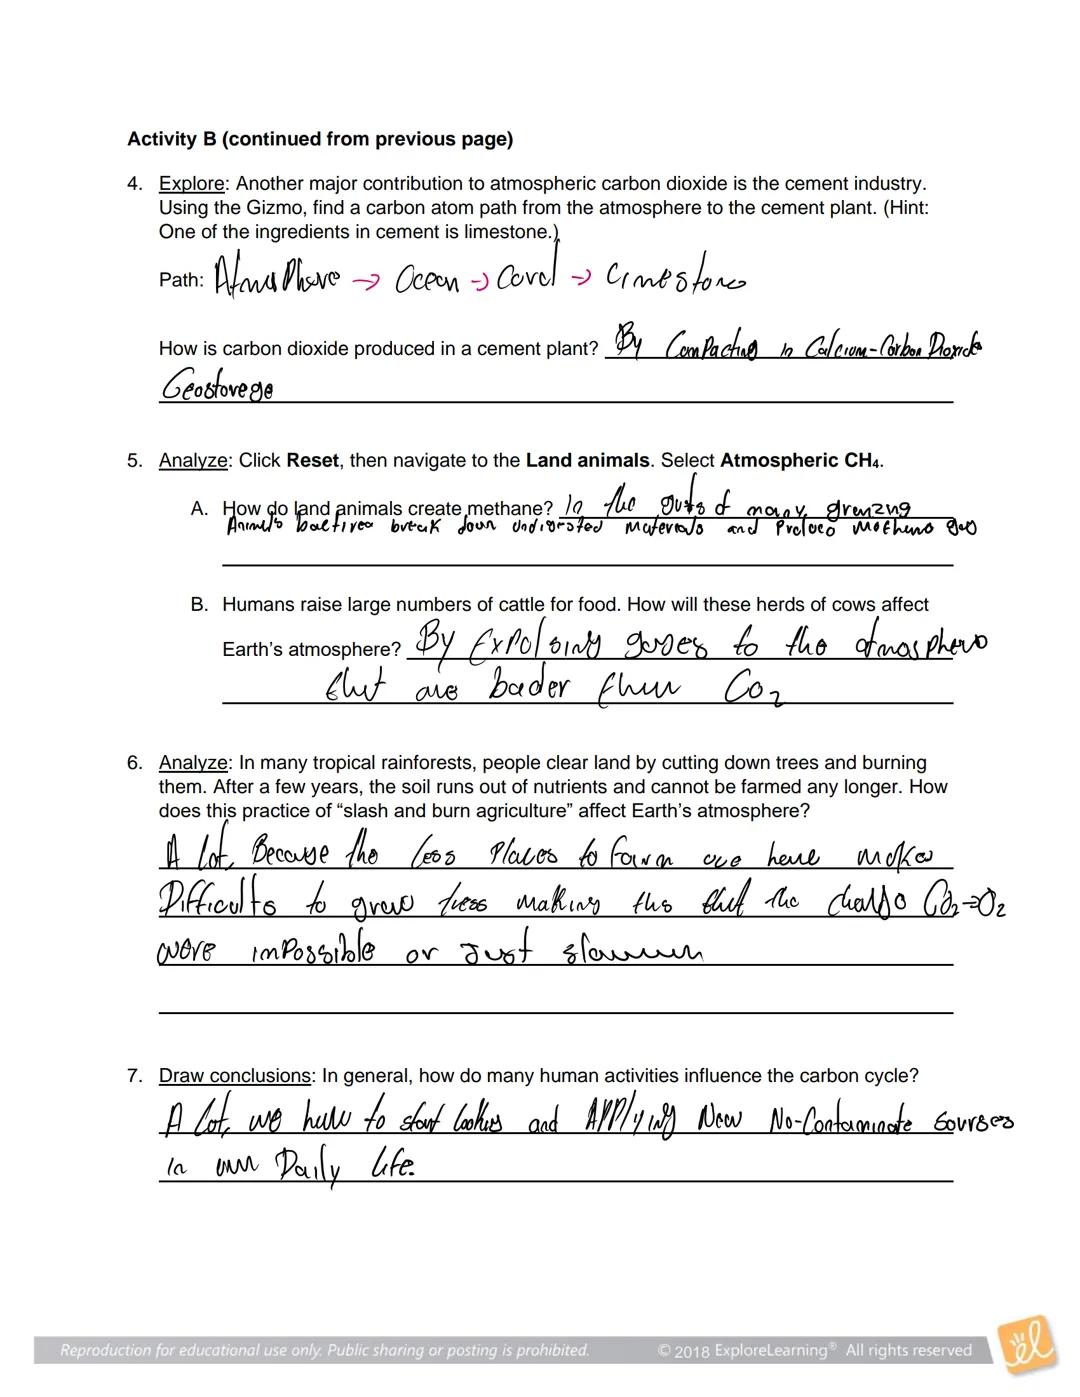 Activity B (continued from previous page)
4. Explore: Another major contribution to atmospheric carbon dioxide is the cement industry.
Using the Gizmo, find a carbon atom path from the atmosphere to the cement plant. (Hint:
One of the ingredients in cement is limestone.)
Path: Atmosphere → Ocean → Coral → Limestone
How is carbon dioxide produced in a cement plant? By Compacting in Calcium-Carbon Dioxide
5. Analyze: Click Reset, then navigate to the Land animals. Select Atmospheric CH₄.
A. How do land animals create methane? In the guts of many
Animals break down undigested materials and methane gas
B. Humans raise large numbers of cattle for food. How will these herds of cows affect
Earth's atmosphere? By Expolsing gases to the atmosphere
that are bader then Co₂
6. Analyze: In many tropical rainforests, people clear land by cutting down trees and burning
them. After a few years, the soil runs out of nutrients and cannot be farmed any longer. How
does this practice of “slash and burn agriculture” affect Earth's atmosphere?
A lot, Because the less places to farm make
Difficults to grow trees making that the Co₂→O₂
more impossible or Just
7. Draw conclusions: In general, how do many human activities influence the carbon cycle?
A lot, we have to start looking and APPlying New No-Contaminate Sourses
in our Daily life.
Reproduction for educational use only. Public sharing or posting is prohibited. © 2018 ExploreLearning® All rights reserved
el